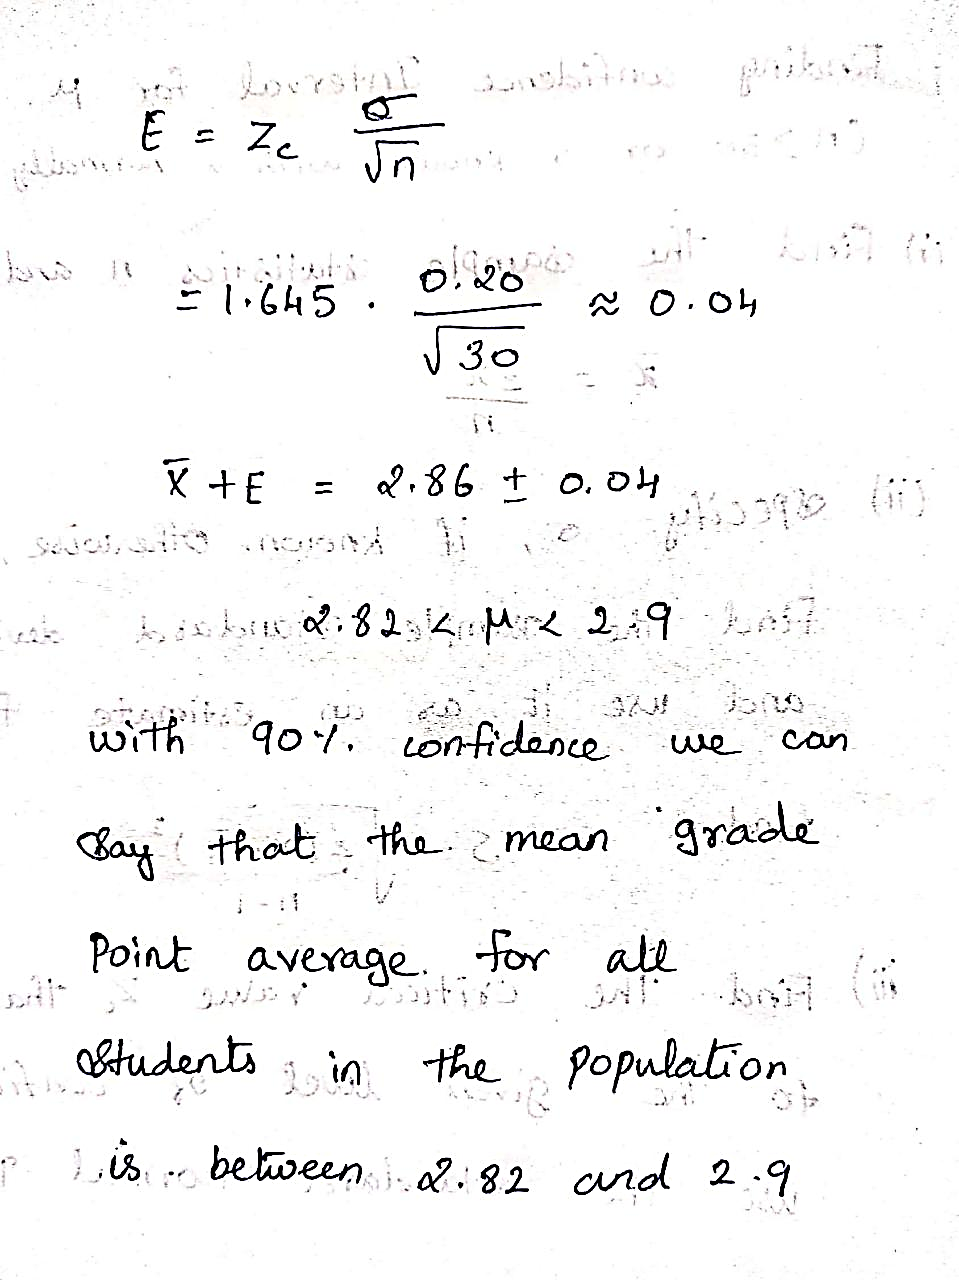 E = Zc σ/√n
= 1.645 . 0.20/√30 ≈ 0.04
x̄ + E = 2.86 ± 0.04
2.82 < μ < 2.9
with 90%. confidence we can
Say that the mean grade
Point average. for all
Students in the population
is between 2.82 and 2.9